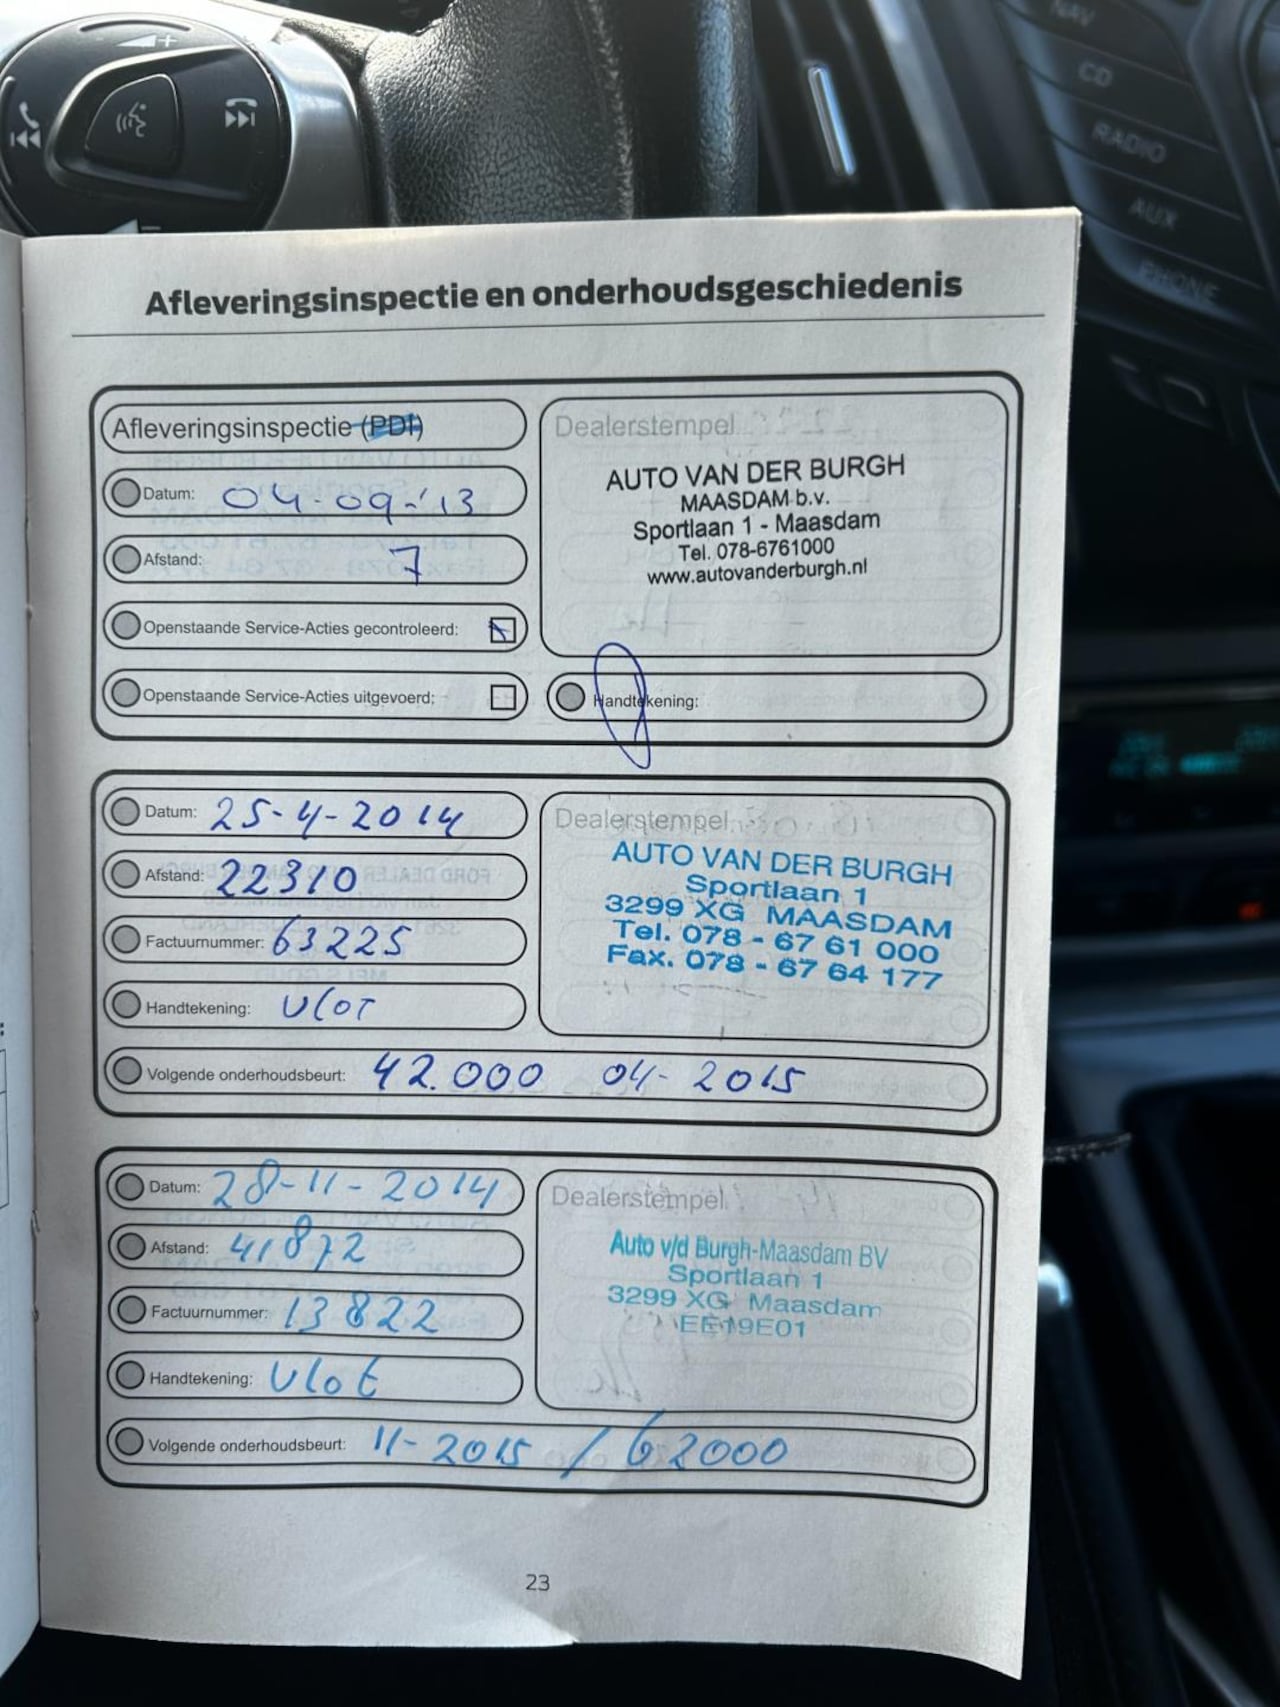 NAV
CD
RADIO
AUX
PHONE
Afleveringsinspectie en onderhoudsgeschiedenis
Afleveringsinspectie (PDI)
Datum: 04-09-'13
Afstand: 7
Openstaande Service-Acties gecontroleerd:
Openstaande Service-Acties uitgevoerd:
Dealerstempel
AUTO VAN DER BURGH
MAASDAM b.v.
Sportlaan 1 - Maasdam
Tel. 078-6761000
www.autovanderburgh.nl
Handtekening:
Datum: 25-4-2014
Afstand: 22310
Factuurnummer: 63225
Handtekening: Vlot
Dealerstempel
AUTO VAN DER BURGH
Sportlaan 1
3299 XG MAASDAM
Tel. 078 - 67 61 000
Fax. 078 - 67 64 177
Volgende onderhoudsbeurt: 42.000 04-2015
Datum: 28-11-2014
Afstand: 41872
Factuurnummer: 13822
Handtekening: Vlot
Dealerstempel
Auto v/d Burgh-Maasdam BV
Sportlaan 1
3299 XG Maasdam
EE19E01
Volgende onderhoudsbeurt: 11-2015 / 62000
23